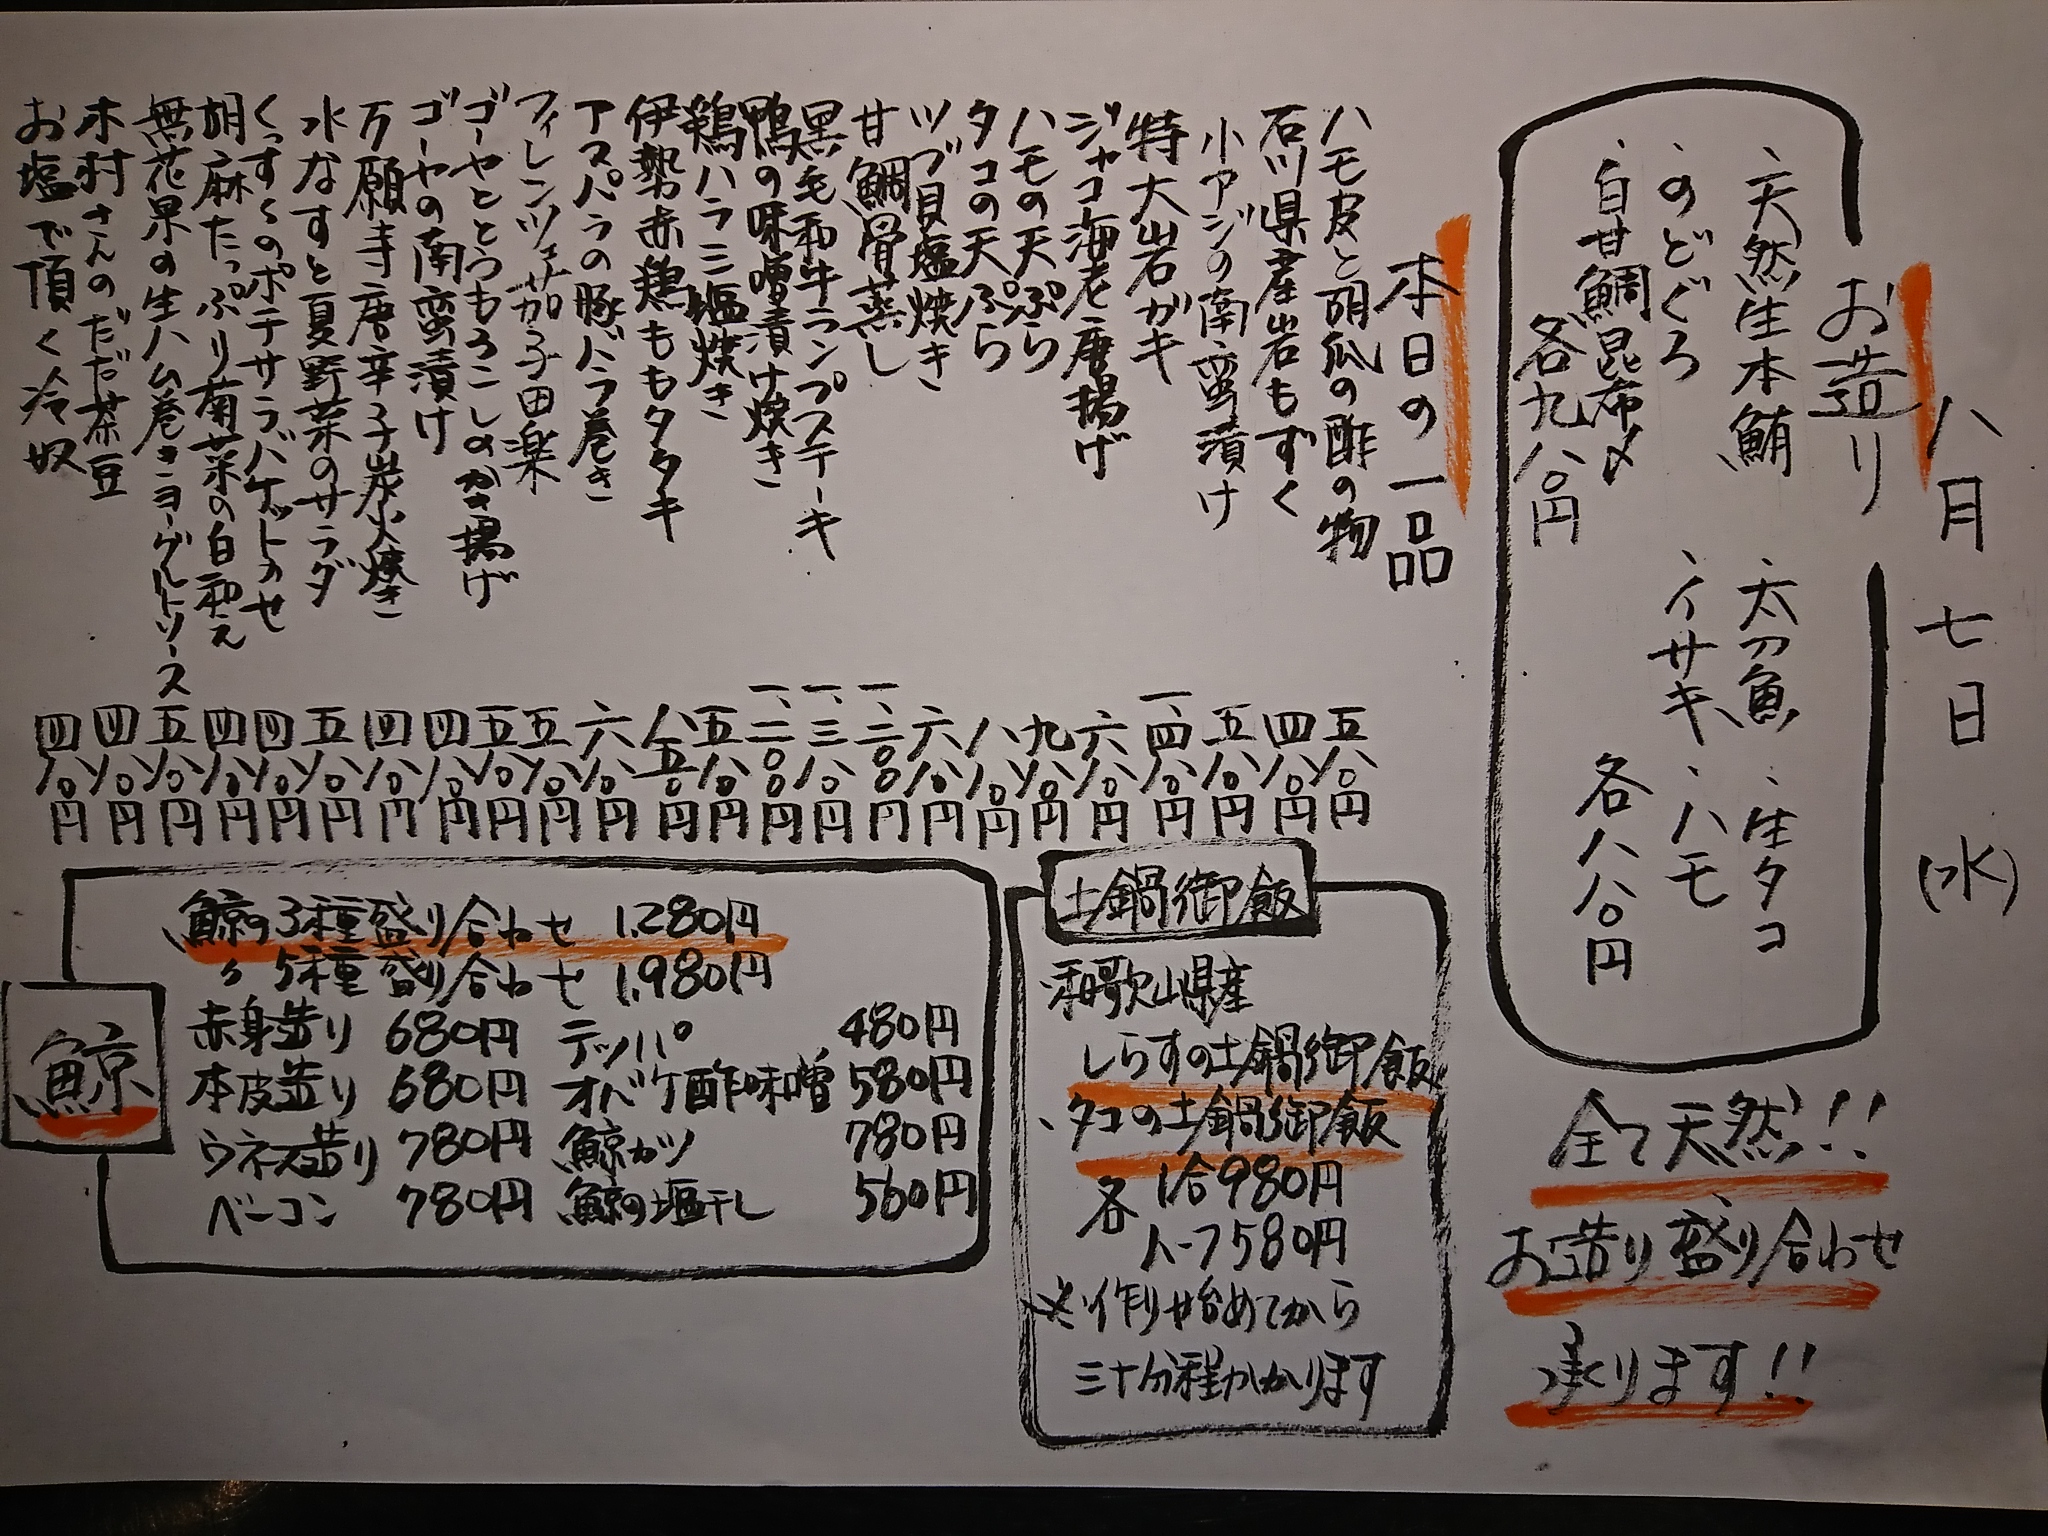 八月七日(水)
お造り
・天然生本鮪
・のどぐろ
・白甘鯛昆布〆
各九八〇円
・太刀魚
・生タコ
・イサキ
・ハモ
各八八〇円
全て天然!!
お造り盛り合わせ
承ります!!
本日の一品
ハモ皮と胡瓜の酢の物 五八〇円
石川県産岩もずく 四八〇円
小アジの南蛮漬け 五八〇円
特大岩ガキ 一、四八〇円
ジャコ海老唐揚げ 六八〇円
ハモの天ぷら 九八〇円
タコの天ぷら 八八〇円
ツブ貝塩焼き 六八〇円
甘鯛骨蒸し 一、二〇〇円
黒毛和牛ランプステーキ 一、三八〇円
鴨の味噌漬け焼き 一、二〇〇円
鶏ハラミ塩焼き 五八〇円
伊勢赤鶏ももタタキ 八五〇円
アスパラの豚バラ巻き 六八〇円
フィレンツェ茄子田楽 五八〇円
ゴーヤととうもろこしのかき揚げ 五八〇円
ゴーヤの南蛮漬け 四八〇円
万願寺唐辛子炭火焼き 四八〇円
水なすと夏野菜のサラダ 五八〇円
くっすくのポテサラバケットのせ 四八〇円
胡麻たっぷり菊菜の白和え 四八〇円
無花果の生ハム巻きヨーグルトソース 五八〇円
木村さんのだだ茶豆 四八〇円
お塩で頂く冷奴 四八〇円
土鍋御飯
・和歌山県産
しらすの土鍋御飯
・タコの土鍋御飯
各 1合980円
ハーフ580円
※作り始めてから
三十分程かかります
鯨
鯨の3種盛り合わせ 1,280円
〃 5種盛り合わせ 1,980円
赤身造り 680円 テッパ 480円
本皮造り 680円 オバケ酢味噌 580円
ウネス造り 780円 鯨カツ 780円
ベーコン 780円 鯨の塩干し 560円